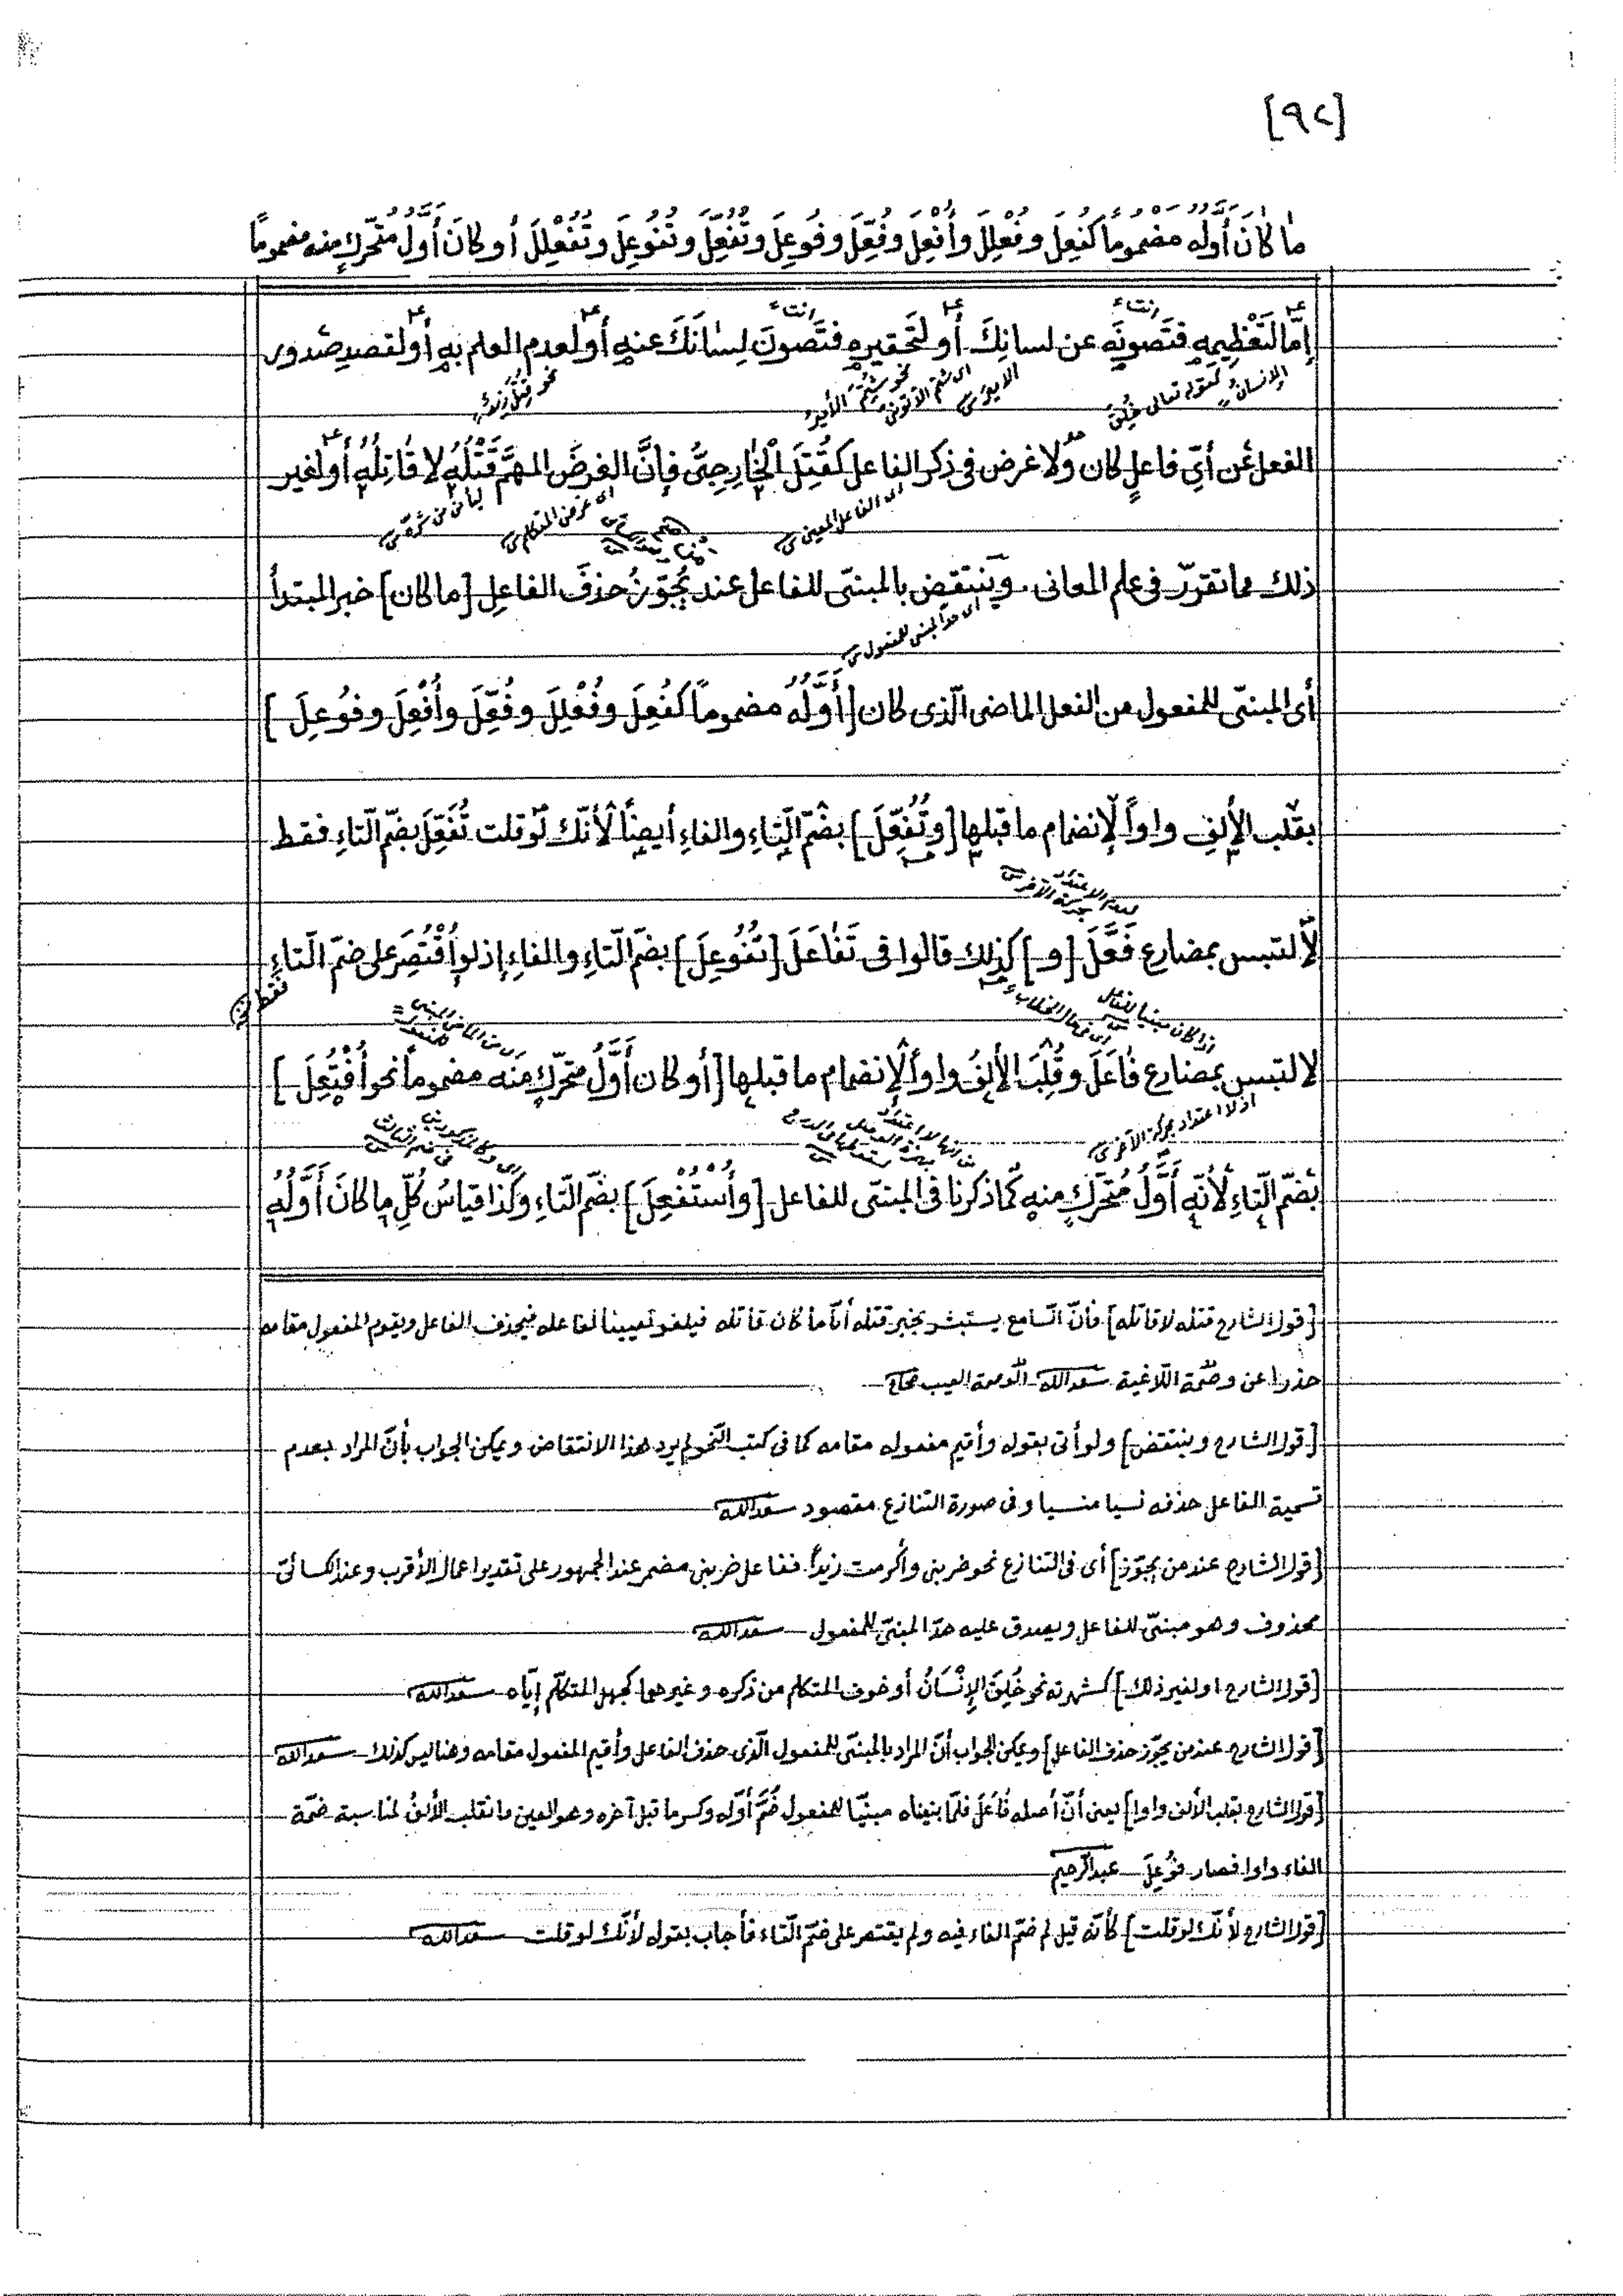 [٩٢]
ما كانَ أَوَّلُه مضموماً كَفُعِلَ وفُعْلِلَ وأُفْعِلَ وفُعِّلَ وفُوعِلَ وتُفُعِّلَ وتُفُوعِلَ وتُفُعْلِلَ أو كانَ أَوَّلُ متحرّكٍ منه مضموماً
إمّا لتَعْظِيمِهِ فتَصونَه عن لسانِكَ أو لتَحقيرِهِ فتَصونَ لِسانَكَ عنه أو لعدم العلم به أو لقصدِ صُدورِ
الإنسانُ كقوله تعالى خُلِقَ
نحو شُتِمَ الأميرُ
نحو قُتِلَ زيدٌ
الفعل عن أيّ فاعلٍ كان ولا غرض فى ذكر الفاعل كقُتِلَ الخارِجِيُّ فإنَّ الغرضَ المهمَّ قَتْلُه لا قاتِلُه أو لغير
اى الفاعل المعين
اى غرض المتكلم
ذلك مما تقرّر فى علم المعانى. ويَنتقِض بالمبنىّ للفاعل عند يُجَوِّزُ حذفَ الفاعِلِ [ما كان] خبر المبتدأ
اى حد المبنى للمفعول
أى المبنىّ للمفعول من الفعل الماضى الّذى كان [أَوَّلُه مضموماً كَفُعِلَ وفُعْلِلَ وفُعِّلَ وأُفْعِلَ وفُوعِلَ]
بقلب الألِفِ واواً لإنضمام ما قبلها [وتُفُعِّلَ] بضمّ التّاءِ والفاءِ أيضاً لأنّك لو قلت تُفَعِّلَ بضمّ التّاءِ فقط
لالتبس بمضارع فَعَّلَ [و] كذلك قالوا فى تَفاعَلَ [تُفُوعِلَ] بضمّ التّاءِ والفاءِ إذ لو اُقْتُصِرَ على ضمّ التّاءِ
فقط
لالتبس بمضارع فاعَلَ وقُلِبَ الألِفُ واواً لإنضمام ما قبلها [أو كان أَوَّلُ متحرّكٍ منه مضموماً نحو اُفْتُعِلَ]
اذ لا اعتداد بحركة الآخر
بضمّ التّاءِ لأنّه أَوَّلُ مُتحَرِّكٍ منه كما ذكرنا فى المبنىّ للفاعل [واُسْتُفْعِلَ] بضمّ التّاءِ وكذا قياسُ كُلِّ ما كانَ أَوَّلُه
[قول الشارح قتله لا قاتله] فأنّ السّامع يستبشر بخبر قتله أيّا ما كان قاتله فيلغو تعيينا لفاعله فيحذف الفاعل ويقوم المفعول مقامه
حذرا عن وصمة اللّاغية سعدالله الوصمة العيب
[قول الشارح وينتقض] ولو أتى بقوله وأقيم مفعوله مقامه كما فى كتب النّحو لم يرد هذا الانتقاض ويمكن الجواب بأنّ المراد بعدم
تسمية الفاعل حذفه نسيا منسيا وفى صورة التنازع مقصود سعدالله
[قول الشارح عند من يجوّز] أى فى التنازع نحو ضربنى وأكرمت زيداً. ففاعل ضربنى مضمر عند الجمهور على تقدير اعمال الأقرب وعند الكسائىّ
محذوف وهو مبنىّ للفاعل ويصدق عليه حدّ المبنىّ للمفعول سعدالله
[قول الشارح او لغير ذلك] كشهرته نحو خُلِقَ الإِنْسَانُ أو خوف المتكلم من ذكره وغيرهما كجهل المتكلّم إيّاه سعدالله
[قول الشارح عند من يجوّز حذف الفاعل] ويمكن الجواب أنّ المراد بالمبنىّ للمفعول الّذى حذف الفاعل وأقيم المفعول مقامه وهنا ليس كذلك سعدالله
[قول الشارح بقلب الألف واوا] يعنى أنّ أصله فَاعَلَ فلمّا بنيناه مبنيّا للمفعول ضُمَّ أوّله وكسر ما قبل آخره وهو العين فانقلب الألفُ لمناسبة ضمّة
الفاء واوا فصار فُوعِلَ عبدالرحيم
[قول الشارح لأنّك لو قلت] كأنّه قيل لم ضمّ الفاء فيه ولم يقتصر على ضمّ التّاء فأجاب بقوله لأنّك لو قلت سعدالله